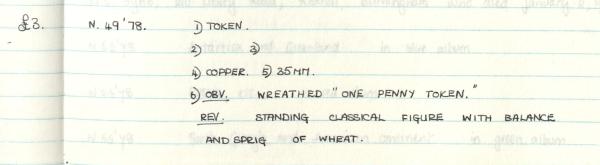 £3. N. 49'78. 1) TOKEN.
2) 3)
4) COPPER. 5) 35MM.
6) OBV. WREATHED "ONE PENNY TOKEN."
REV. STANDING CLASSICAL FIGURE WITH BALANCE
AND SPRIG OF WHEAT.